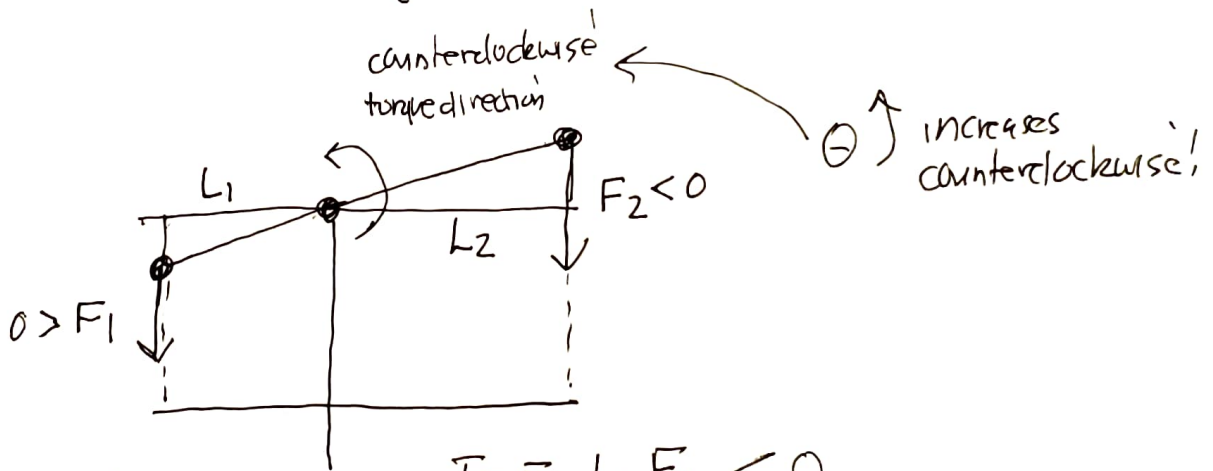 counterclockwise!
torque direction
θ increases
counterclockwise!
L1
F2 < 0
L2
0 > F1